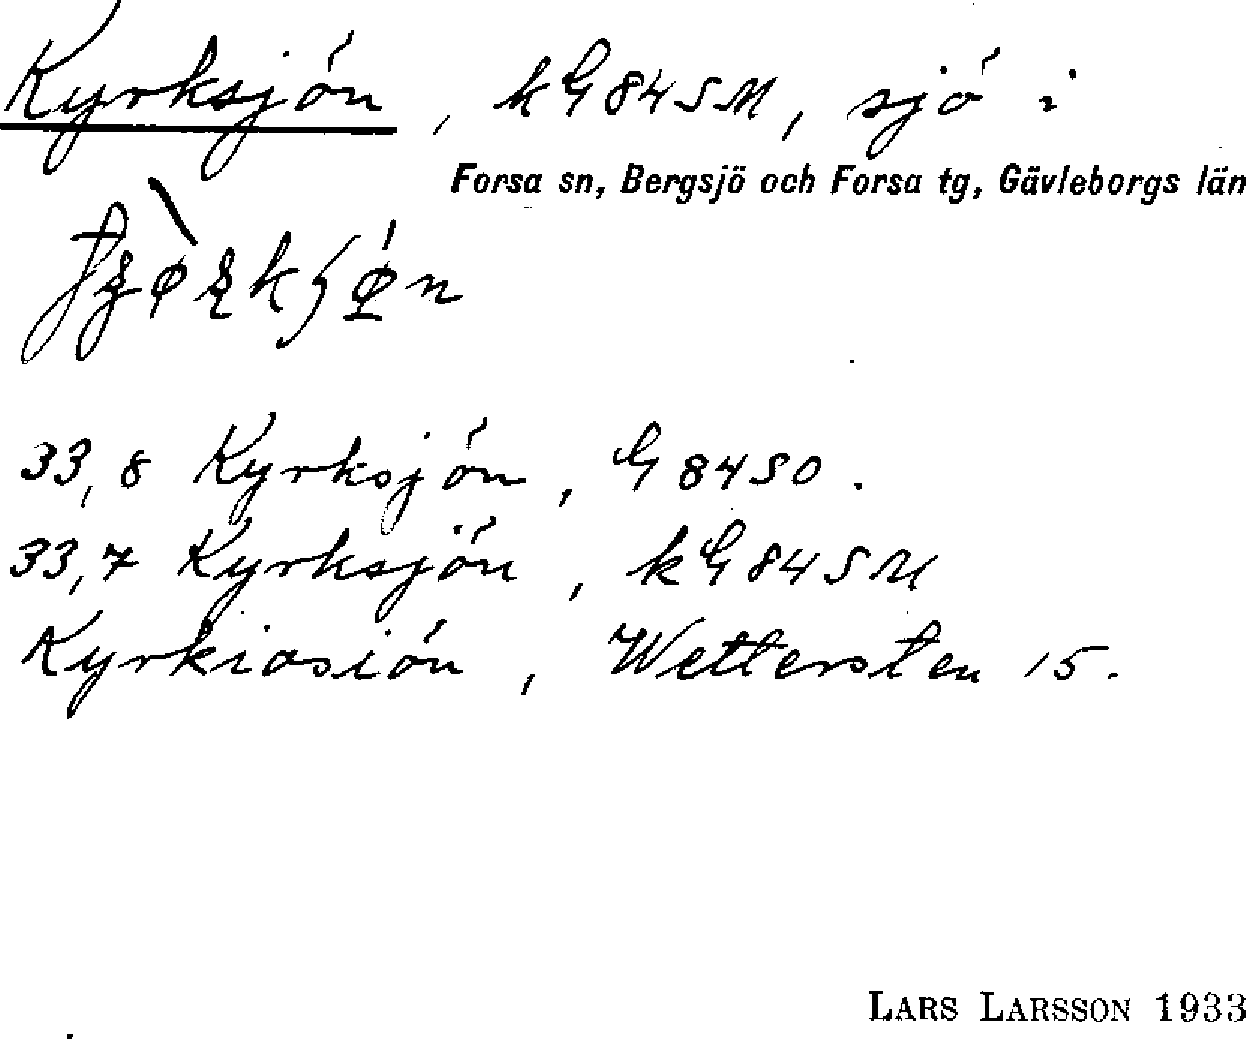 Kyrksjön, kG 84 SM, sjö i
Forsa sn, Bergsjö och Forsa tg, Gävleborgs län
33,8 Kyrksjön, G 84 SO.
33,7 Kyrksjön, kG 84 SM
Kyrkiosiön, Wettersten 15.
LARS LARSSON 1933